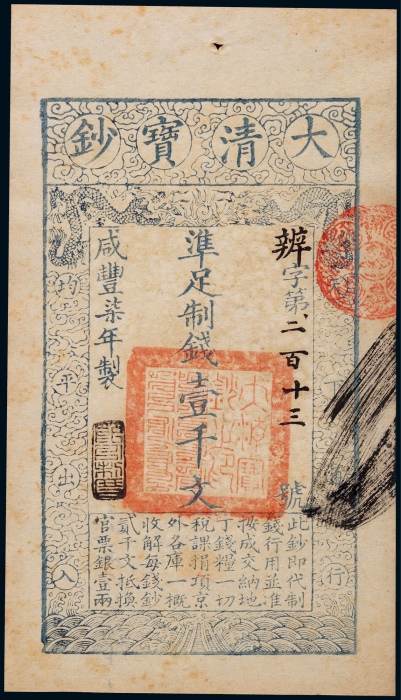 大清寶鈔
下行
辨字第二百十三號
準足制錢壹千文
咸豐柒年製
均平出入
此鈔即代制
錢行用並准
按成交納地
丁錢糧一切
稅課捐項京
外各庫一概
收解每錢鈔
貳千文抵換
官票銀壹兩